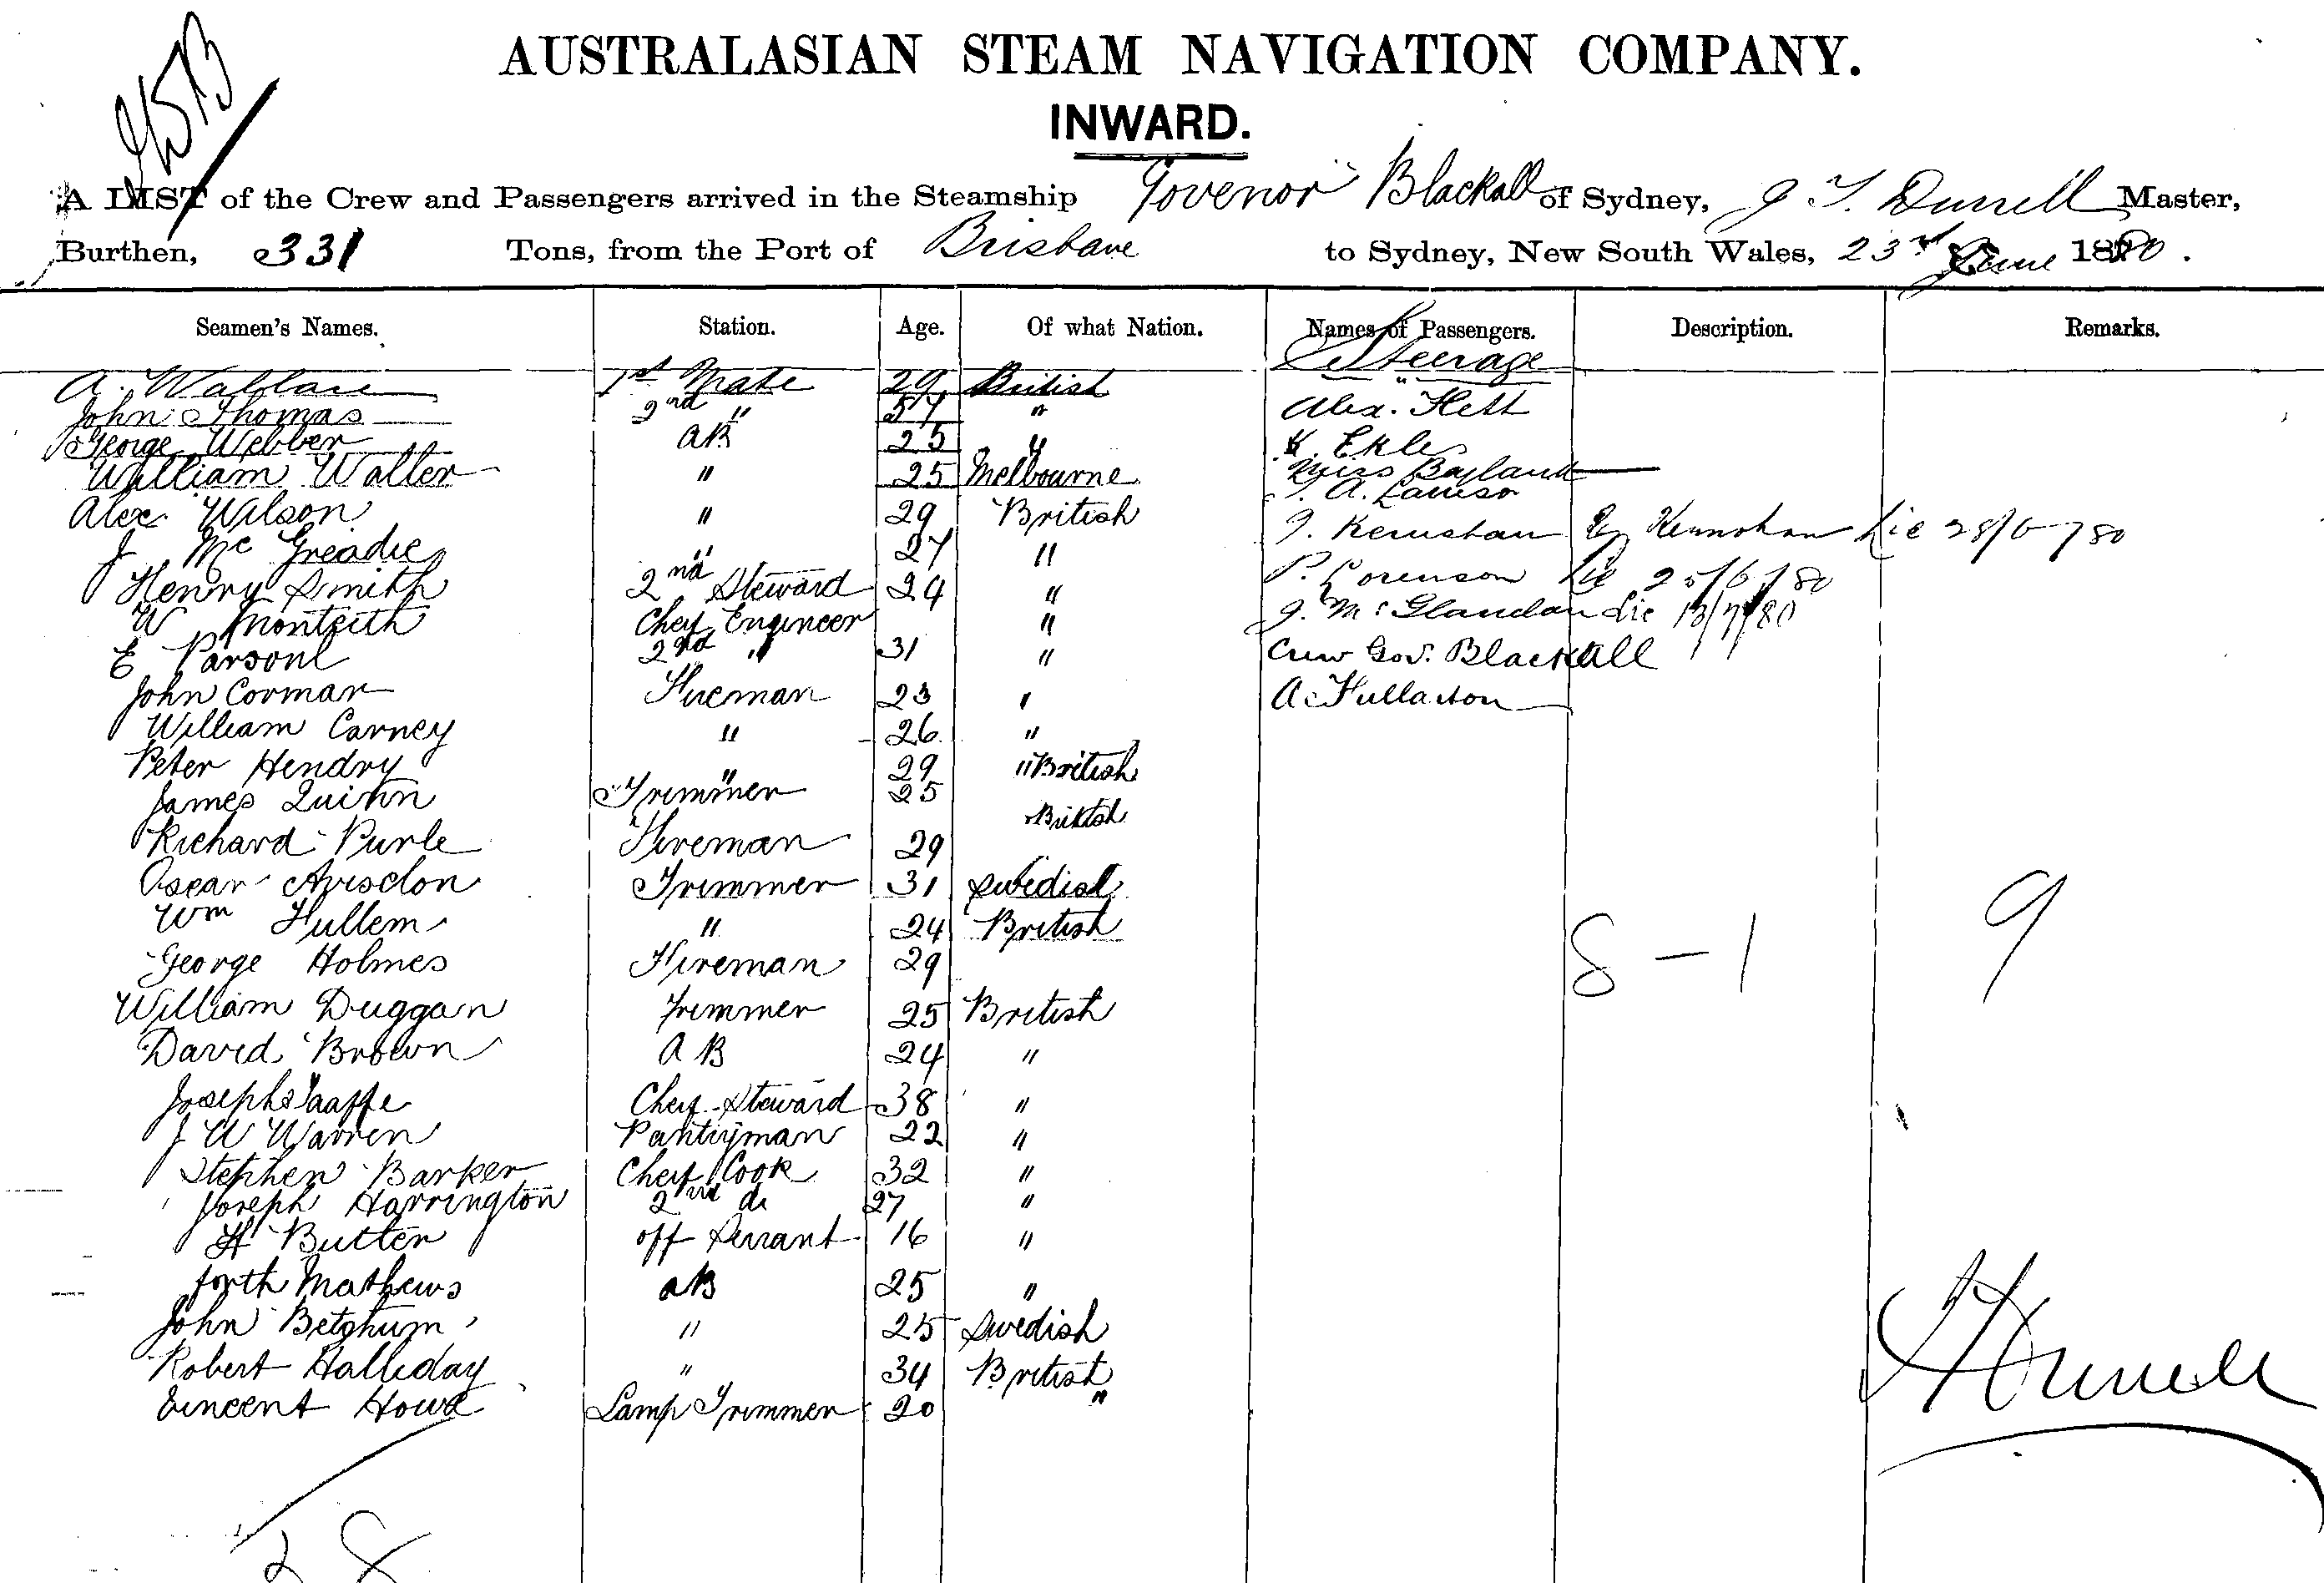 AUSTRALASIAN STEAM NAVIGATION COMPANY.
INWARD.
A LIST of the Crew and Passengers arrived in the Steamship Govenor Blackall of Sydney, J T. Durrell Master,
Burthen, 331 Tons, from the Port of Brisbane to Sydney, New South Wales, 23rd June 1880.
Seamen's Names. Station. Age. Of what Nation. Names of Passengers. Description. Remarks.
Steerage
A. Wallace 1st Mate 29 British
John Thomas 2nd " 57 " Alex. Hett
George Webber AB 25 " K. Ekles
William Walter " 25 Melbourne Miss
Alex. Wilson " 29 British A.
J McGreadie " 27 " J. Kernohan Lic 28/6/80
Henry Smith 2nd Steward 24 " P. Lorenson Lic 25/6/80
W Monteith Chef Engineer " J. McGlandan Lic 13/7/80
E Parsont 2nd " 31 " Crew Gov. Blackall
John Cormar Fireman 23 " A. Fullarton
William Carney " 26 "
Peter Hendry " 29 " British
James Quinn Trimmer 25 British
Richard Purle Fireman 29
Oscar Trimmer 31 Swedish
Wm Hullem " 24 British
George Holmes Fireman 29 8 - 1 9
William Duggan Trimmer 25 British
David Brown AB 24 "
Joseph Chef Steward 38 "
J W Warren Pantryman 22 "
Stephen Barker Chef Cook 32 "
Joseph Harrington 2nd do 27 "
H Butter off Servant 16 "
Forth Mathews AB 25 "
John Betghum " 25 Swedish
Robert Halliday " 34 British
Vincent Howe Lamp Trimmer 20 "
28